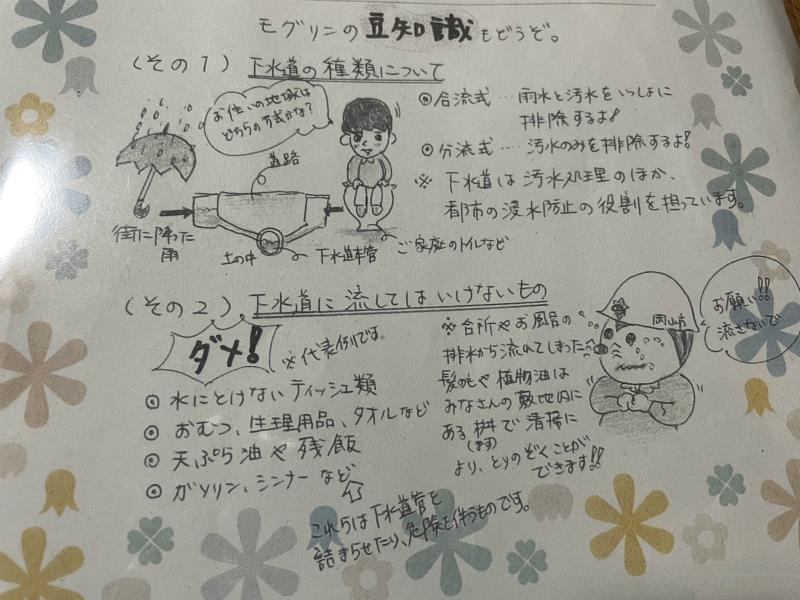 モグリンの豆知識もどうぞ。
(その1) 下水道の種類について
お住いの地域は
どちらの方式かな?
◎合流式…雨水と汚水をいっしょに
排除するよ!
◎分流式…汚水のみを排除するよ!
※ 下水道は汚水処理のほか、
都市の浸水防止の役割を担っています。
道路
街に降った
雨
土の中
下水道本管
ご家庭のトイレなど
(その2) 下水道に流してはいけないもの
ダメ!
※代表例です。
◎ 水にとけないティッシュ類
◎ おむつ、生理用品、タオルなど
◎ 天ぷら油や残飯
◎ ガソリン、シンナーなど
これらは下水道管を
詰まらせたり、危険を伴うものです。
※台所やお風呂の
排水から流れてしまった
髪の毛や植物油は
みなさんの敷地内に
ある桝で清掃に
(ます)
より、とりのぞくことが
できます!!
岡山市
お願い!!
流さないで